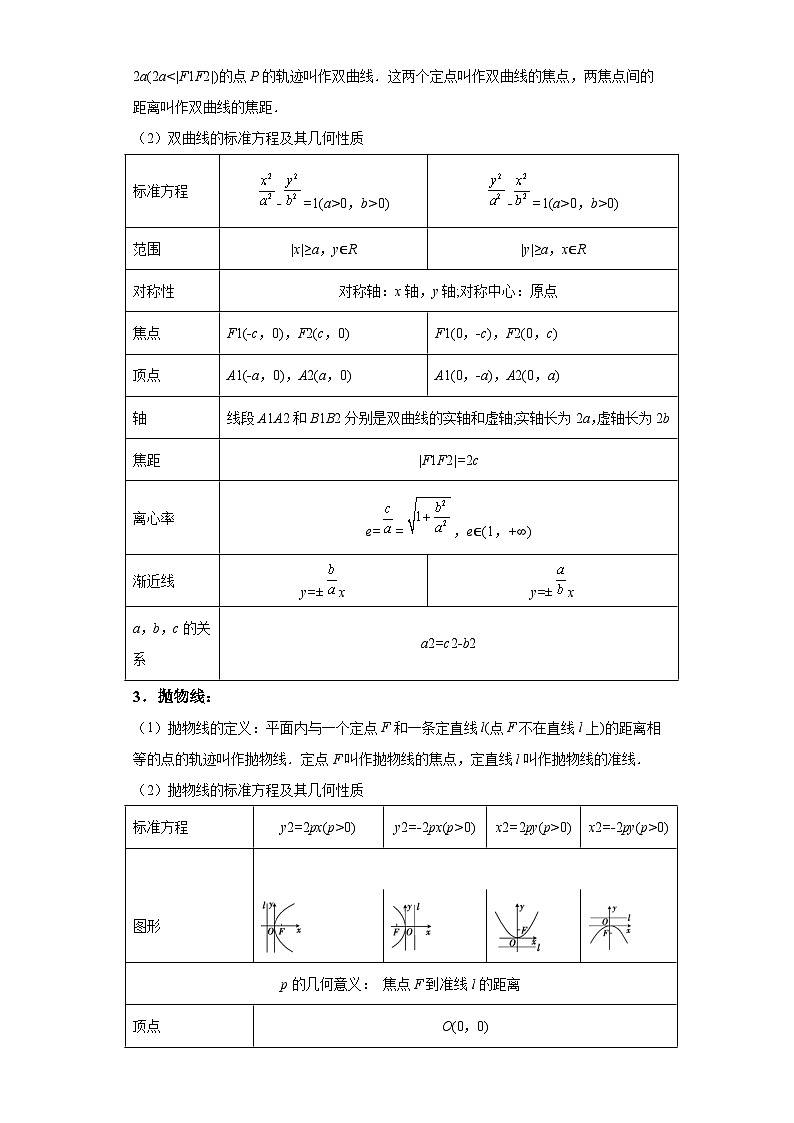 2a(2a<|F1F2|)的点 P 的轨迹叫作双曲线．这两个定点叫作双曲线的焦点，两焦点间的
距离叫作双曲线的焦距．
（2）双曲线的标准方程及其几何性质
标准方程 x²/a² - y²/b² =1(a>0，b>0) y²/a² - x²/b² =1(a>0，b>0)
范围 |x|≥a，y∈R |y|≥a，x∈R
对称性 对称轴：x 轴，y 轴;对称中心：原点
焦点 F1(-c，0)，F2(c，0) F1(0，-c)，F2(0，c)
顶点 A1(-a，0)，A2(a，0) A1(0，-a)，A2(0，a)
轴 线段 A1A2 和 B1B2 分别是双曲线的实轴和虚轴;实轴长为 2a,虚轴长为 2b
焦距 |F1F2|=2c
离心率 e= c/a = √(1+b²/a²) ，e∈(1，+∞)
渐近线 y=± b/a x y=± a/b x
a，b，c 的关
系 a2=c2-b2
3．抛物线：
（1）抛物线的定义：平面内与一个定点 F 和一条定直线 l(点 F 不在直线 l 上)的距离相
等的点的轨迹叫作抛物线．定点 F 叫作抛物线的焦点，定直线 l 叫作抛物线的准线．
（2）抛物线的标准方程及其几何性质
标准方程 y2=2px(p>0) y2=-2px(p>0) x2=2py(p>0) x2=-2py(p>0)
图形
l y O F x
y l F O x
y F O x l
y O l F x
p 的几何意义： 焦点 F 到准线 l 的距离
顶点 O(0，0)